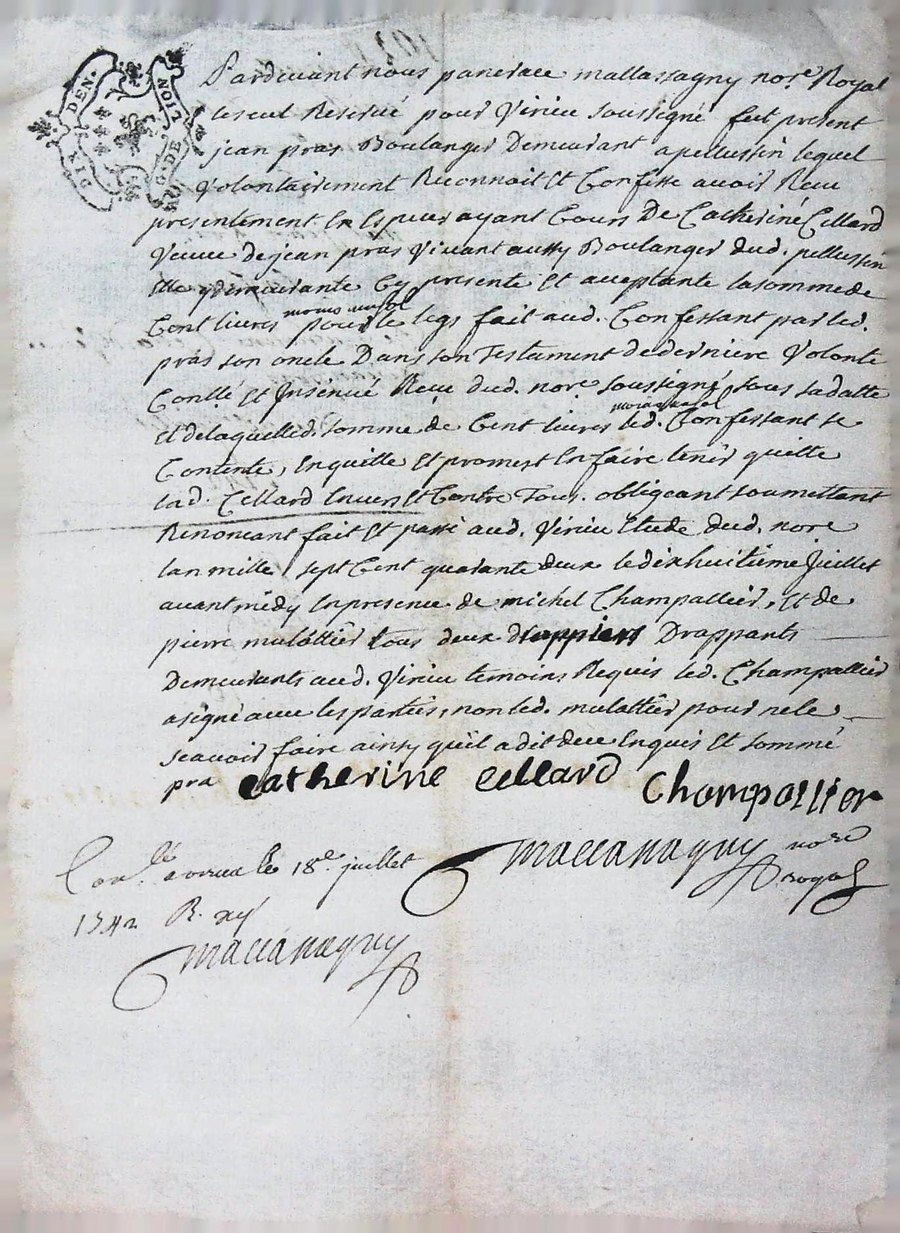 DIX DEN.
G. DE LION
Pardevant nous pancrace mallassagny nore. Royal
le seul Reservé pour Virieu soussigné fut present
jean pras Boulanger Demeurant a pellussin lequel
Volontairement Reconnoit Et Confesse avoir Receu
presentement En Espece ayant Cours De Catheriné Cellard
Veuve de jean pras Vivant aussy Boulanger dud. pellussin
Elle y demeurante Cy presente Et acceptante la somme de
moins
Cent livres pour le legs fait aud. Confessant par led.
pras son oncle Dans son Testament de derniere Volonté
Conllé Et Insinué Receu dud. nore. soussigné, sous sa datte
Et de laquelle d. somme de Cent livres led. Confessant se
Contente, Enquitte Et promest En faire tenir quitte
lad. Cellard Envers Et Contre Tous. obligeant soumettant
Renonçant fait Et passé aud. Virieu Etude dud. nore
lan mille sept Cent quarante deux le dix huitieme Juillet
avant midy En presence de michel Champallier, Et de
pierre mulottier tous deux Drappants
Demeurants aud. Virieu temoins Requis led. Champallier
a signé avec les parties, non led. mulottier pour ne le
scavoir faire ainsy qu'il a dit deue Enquis Et sommé
pra Catherine Cellard Champollier
nore
royal
Conllé a le 18e. juillet
1742 R. xy